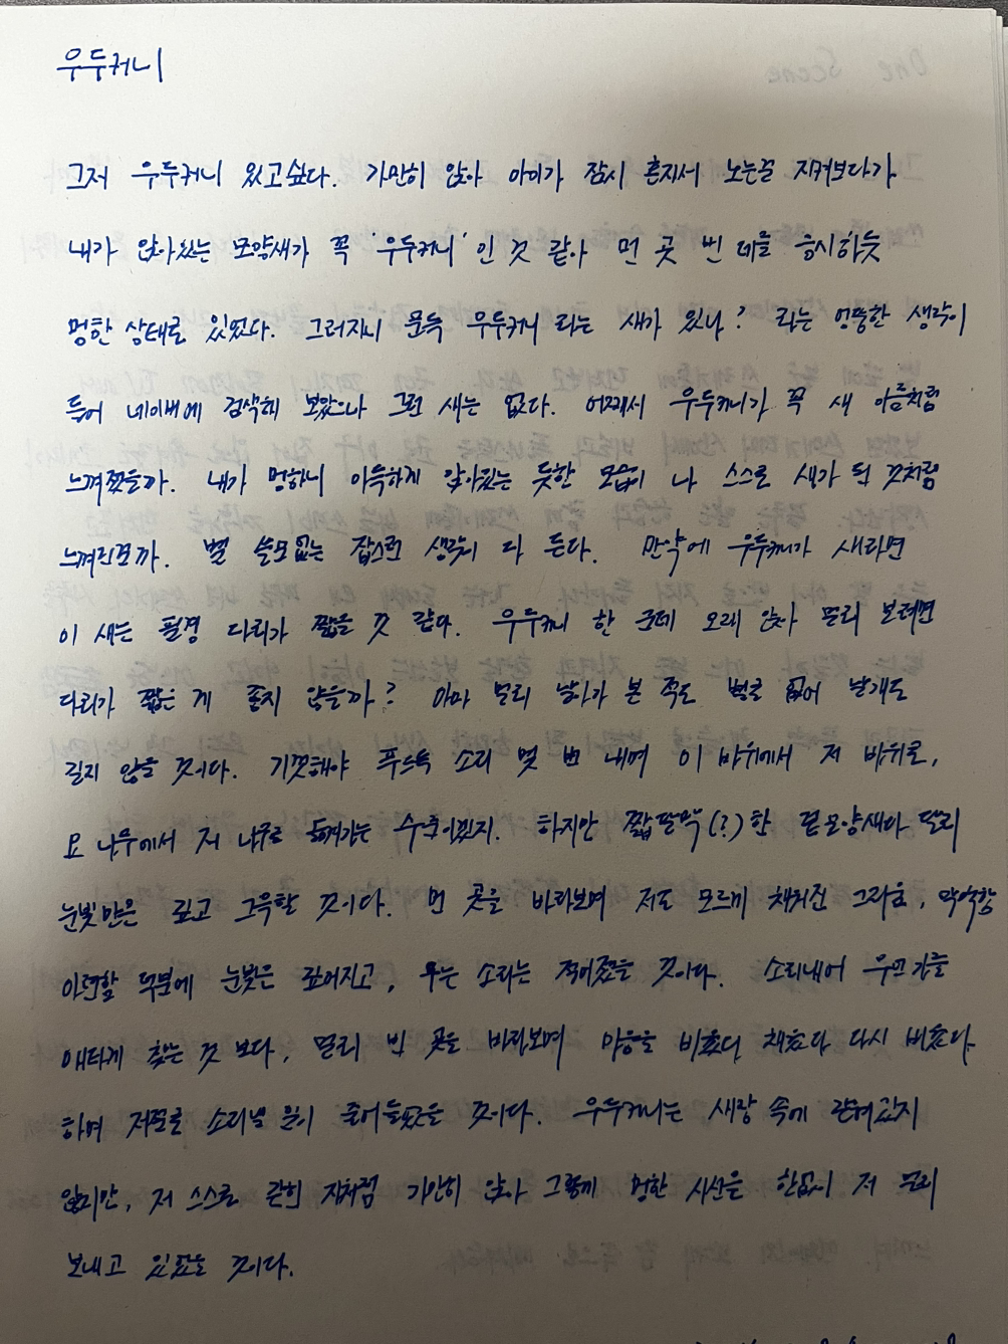 우두커니
그저 우두커니 있고싶다. 가만히 앉아 아이가 잠시 혼자서 노는걸 지켜보다가
내가 앉아있는 모양새가 꼭 '우두커니' 인 것 같아 먼 곳 빈 데를 응시하듯
멍한 상태로 있었다. 그러자니 문득 우두커니 라는 새가 있나? 라는 엉뚱한 생각이
들어 네이버에 검색해 보았으나 그런 새는 없다. 어째서 우두커니가 꼭 새 이름처럼
느껴졌을까. 내가 멍하니 아득하게 앉아있는 듯한 모습이 나 스스로 새가 된 것처럼
느껴진걸까. 별 쓸모없는 잡스런 생각이 다 든다. 만약에 우두커니가 새라면
이 새는 필경 다리가 짧을 것 같다. 우두커니 한 군데 오래 앉아 멀리 보려면
다리가 짧은 게 좋지 않을까? 아마 멀리 날아가 본 적도 별로 없어 날개도
길지 않을 것이다. 기껏해야 푸드득 소리 몇 번 내며 이 바위에서 저 바위로,
요 나무에서 저 나무로 옮겨가는 수준이겠지. 하지만 짧딸막(?)한 겉모양새와 달리
눈빛만은 깊고 그윽할 것이다. 먼 곳을 바라보며 저도 모르게 채워진 그리움, 막막함
아련함 덕분에 눈빛은 깊어지고, 우는 소리는 적어졌을 것이다. 소리내어 무언가를
애타게 찾는 것 보다, 멀리 빈 곳을 바라보며 마음을 비웠다 채웠다 다시 비웠다
하며 저절로 소리낼 일이 줄어들었을 것이다. 우두커니는 새장 속에 갇혀있지
않지만, 저 스스로 갇힌 자처럼 가만히 앉아 그렇게 멍한 시선을 한없이 저 멀리
보내고 있었을 것이다.